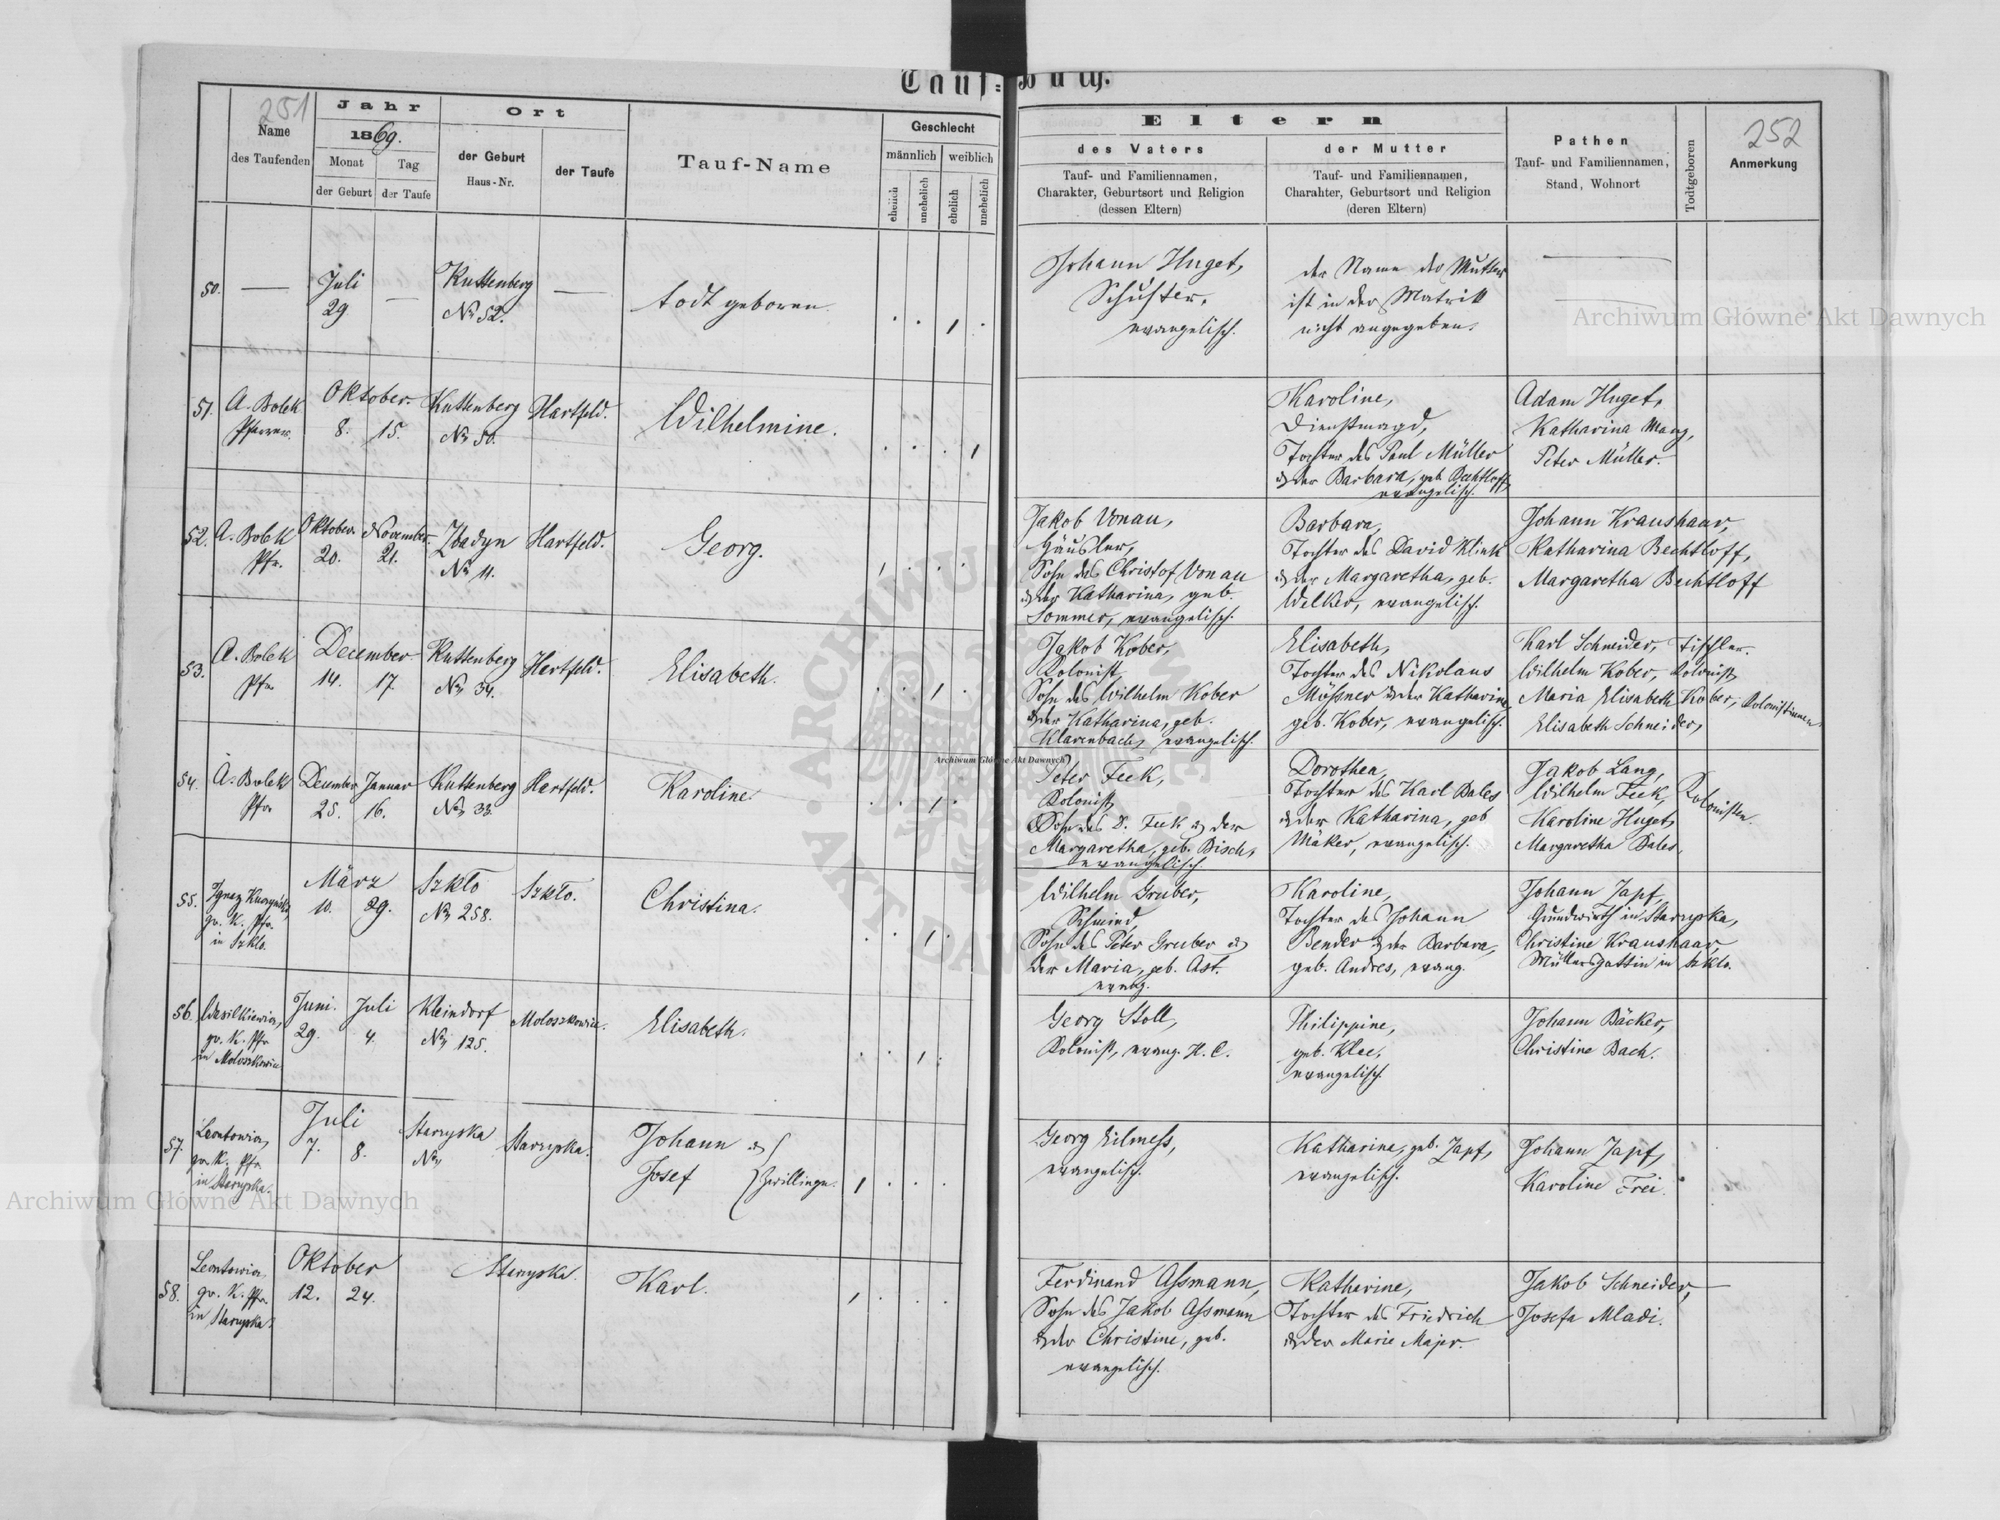 Tauf-Buch.
251
Name
des Taufenden
Jahr
1869.
Monat
Tag
der Geburt
der Taufe
Ort
der Geburt
Haus-Nr.
der Taufe
Tauf-Name
Geschlecht
männlich
weiblich
ehelich
unehelich
ehelich
unehelich
Eltern
des Vaters
Tauf- und Familiennamen,
Charakter, Geburtsort und Religion
(dessen Eltern)
der Mutter
Tauf- und Familiennamen,
Charakter, Geburtsort und Religion
(deren Eltern)
Pathen
Tauf- und Familiennamen,
Stand, Wohnort
Todtgeboren
252
Anmerkung
50.
Juli
29
Kuttenberg
No 52.
todt geboren.
Johann Huget,
Schuster,
evangelisch.
der Name der Mutter
ist in der Matrik
nicht angegeben.
51.
A. Bolek
Pfarrer.
Oktober.
8. 15.
Kuttenberg
No 50.
Hartfeld.
Wilhelmine.
Karoline,
Dienstmagd,
Tochter des Paul Müller
& der Barbara, geb. Bechtloff,
evangelisch.
Adam Huget,
Katharina Mang,
Peter Müller.
52.
A. Bolek
Pfr.
Oktober. November.
20. 21.
Zbadyn
No 11.
Hartfeld.
Georg.
Jakob Vonau,
Häusler,
Sohn des Christof Vonau
& der Katharina, geb.
Sommer, evangelisch.
Barbara,
Tochter des David Klink
& der Margaretha, geb.
Welker, evangelisch.
Johann Kraushaar,
Katharina Bechtloff,
Margaretha Bechtloff
53.
A. Bolek
Pfr.
December.
14. 17.
Kuttenberg
No 34.
Hartfeld.
Elisabeth.
Jakob Kober,
Kolonist,
Sohn des Wilhelm Kober
& der Katharina, geb.
Klarenbach, evangelisch.
Elisabeth,
Tochter des Nikolaus
Müßner & der Katharina
geb. Kober, evangelisch.
Karl Schneider, Tischler.
Wilhelm Kober, Kolonist,
Maria Elisabeth Kober, Kolonistinnen
Elisabeth Schneider,
54.
A. Bolek
Pfr.
December Januar
25. 16.
Kuttenberg
No 33.
Hartfeld.
Karoline.
Peter Feek,
Kolonist,
Sohn des D. Feek & der
Margaretha, geb. Bisch,
evangelisch
Dorothea,
Tochter des Karl Bales
& der Katharina, geb
Mäker, evangelisch.
Jakob Lang,
Wilhelm Feek,
Karoline Huget,
Margaretha Bales,
Kolonisten.
55.
Ignaz
gr. K. Pfr.
in Szklo.
März
10. 29.
Szkło
No 258.
Szkło.
Christina.
Wilhelm Gruber,
Schmied,
Sohn des Peter Gruber &
der Maria, geb. Ast.
evang.
Karoline,
Tochter des Johann
Bender & der Barbara,
geb. Andres, evang.
Johann Zapf,
Grundwirth in Starzyska,
Christine Kraushaar,
Müllersgattin in Szklo.
56.
Wasilkiewicz,
gr. K. Pfr
in Moloszkowice
Juni. Juli
29. 4.
Kleindorf
No 125.
Moloszkowice.
Elisabeth.
Georg Stoll,
Kolonist, evang. H. C.
Philippine,
geb. Klee,
evangelisch.
Johann Bäcker,
Christine Bach.
57.
Leontowicz,
gr. K. Pfr.
in Starzyska.
Juli
7. 8.
Starzyska
No
Starzyska.
Johann &
Josef } Zwillinge.
Georg Eilmeß,
evangelisch.
Katharina, geb. Zapf,
evangelisch.
Johann Zapf,
Karoline Frei.
58.
Leontowicz
gr. K. Pfr.
in Starzyska.
Oktober
12. 24.
Starzyska.
Karl.
Ferdinand Aßmann,
Sohn des Jakob Aßmann
& der Christine, geb.
evangelisch.
Katharine,
Tochter des Friedrich
& der Marie Majer.
Jakob Schneider,
Josefa Mladi.
Archiwum Główne Akt Dawnych
Archiwum Główne Akt Dawnych
Archiwum Główne Akt Dawnych